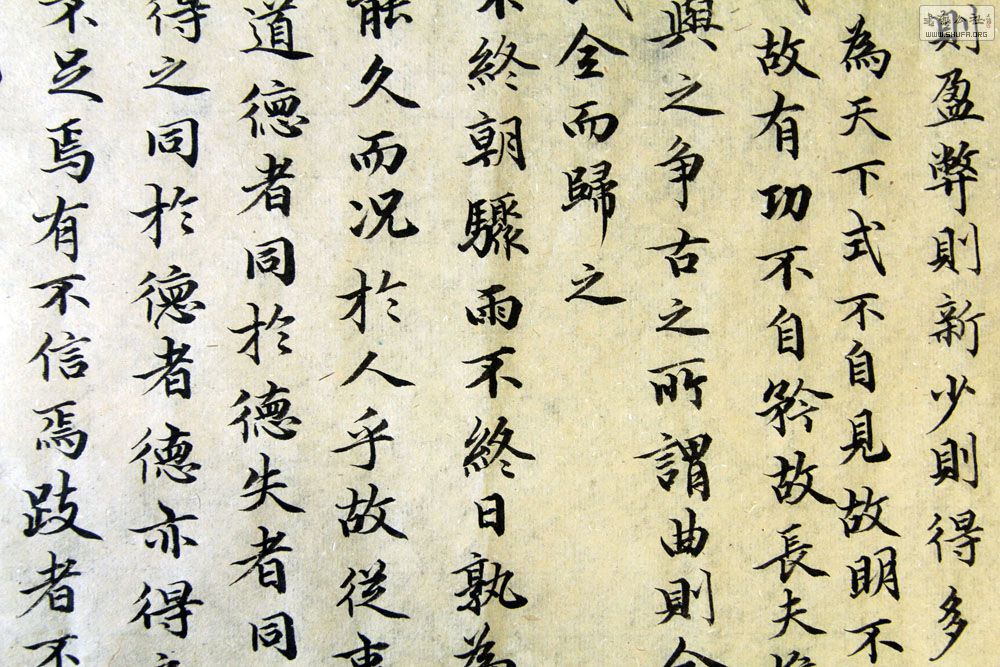 則盈弊則新少則得多
為天下式不自見故明不
故有功不自矜故長夫
與之争古之所謂曲則全
全而歸之
不終朝驟雨不終日孰為
能久而况於人乎故從事
道德者同於德失者同
得之同於德者德亦得
不足焉有不信焉跂者不
WWW.SHUFA.ORG